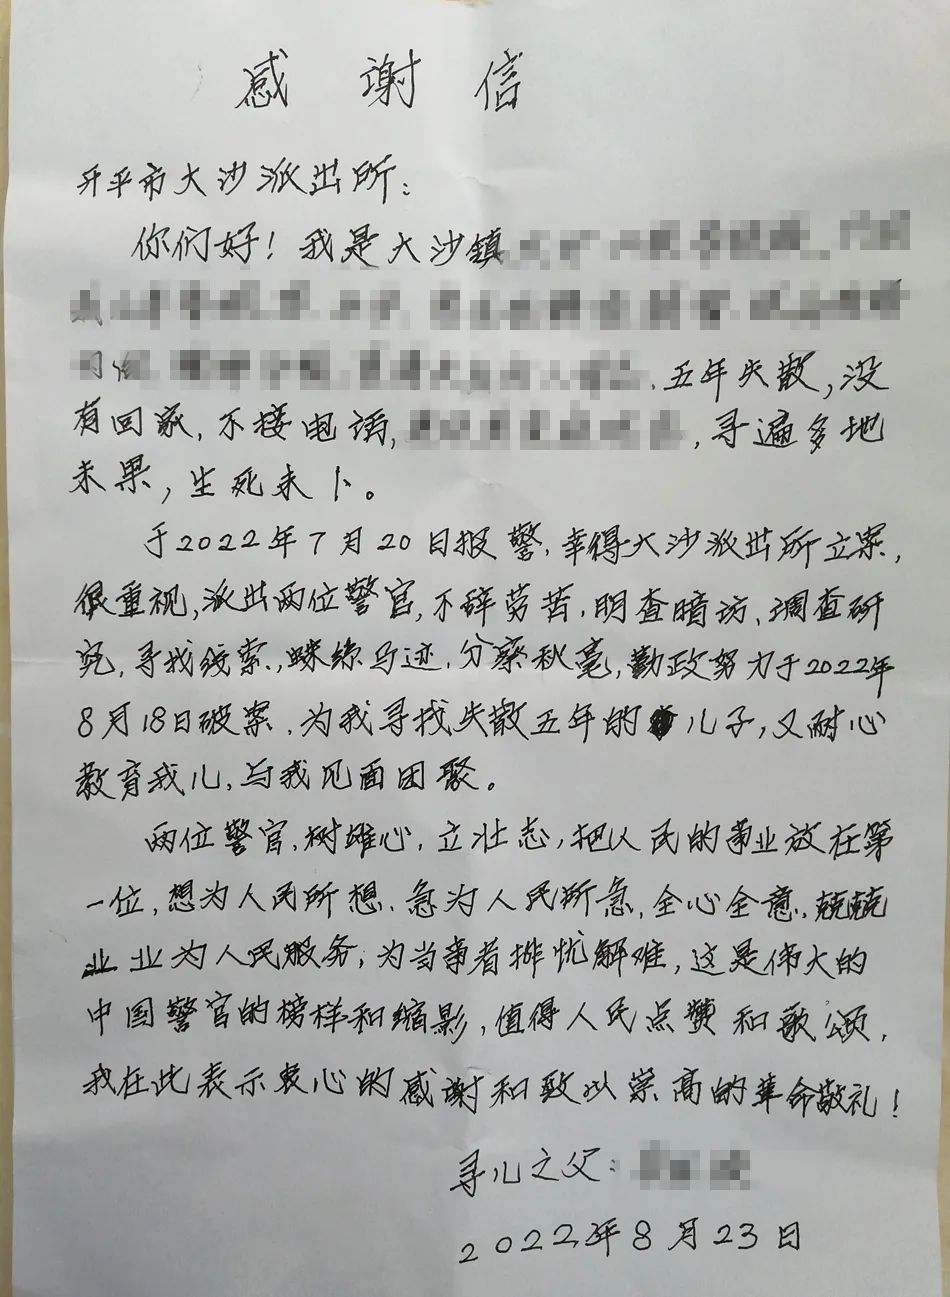 感谢信
开平市大沙派出所：
你们好！我是大沙镇
五年失散，没
有回家，不接电话，，寻遍多地
未果，生死未卜。
于2022年7月20日报警，幸得大沙派出所立案，
很重视，派出两位警官，不辞劳苦，明查暗访、调查研
究，寻找线索，蛛丝马迹，分察秋毫，勤政努力于2022年
8月18日破案，为我寻找失散五年的儿子，又耐心
教育我儿，与我见面团聚。
两位警官，树雄心，立壮志，把人民的事业放在第
一位，想为人民所想、急为人民所急，全心全意，兢兢
业业为人民服务，为当事者排忧解难，这是伟大的
中国警官的榜样和缩影，值得人民点赞和歌颂，
我在此表示衷心的感谢和致以崇高的革命敬礼！
寻儿之父：
2022年8月23日